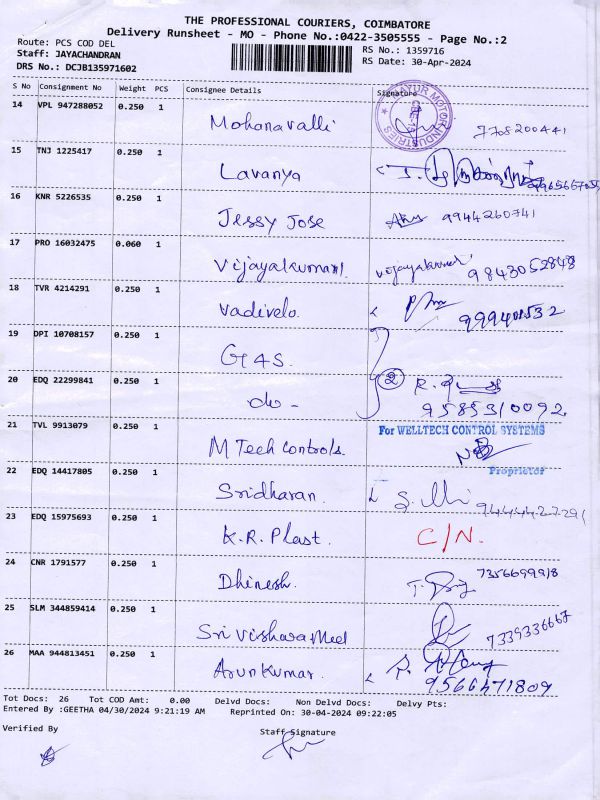 THE PROFESSIONAL COURIERS, COIMBATORE
Delivery Runsheet - MO - Phone No.:0422-3505555 - Page No.:2
Route: PCS COD DEL
RS No: 1359716
Staff: JAYACHANDRAN
RS Date: 30-Apr-2024
DRS No.: DCJB135971602
S No Consignment No Weight PCS Consignee Details Signature
14 VPL 947288052 0.250 1 Mohanavalli 7708200441
15 TNJ 1225417 0.250 1 Lavanya
16 KNR 5226535 0.250 1 Jessy Jose 9944260741
17 PRO 16032475 0.060 1 Vijayakumar vijayakumar 9843052848
18 TVR 4214291 0.250 1 Vadivelo
19 DPI 10708157 0.250 1 GAS
20 EDQ 22299841 0.250 1 do - 2 9585310092
21 TVL 9913079 0.250 1 M Tech Controls. For WELLTECH CONTROL SYSTEMS
Proprietor
22 EDQ 14417805 0.250 1 Sridharan.
23 EDQ 15975693 0.250 1 K.R. Plast. C/N.
24 CNR 1791577 0.250 1 Dhinesh.
25 SLM 344859414 0.250 1 7339336667
26 MAA 944813451 0.250 1 Arunkumar. 9566471809
Tot Docs: 26 Tot COD Amt: 0.00 Delvd Docs: Non Delvd Docs: Delvy Pts:
Entered By :GEETHA 04/30/2024 9:21:19 AM Reprinted On: 30-04-2024 09:22:05
Verified By Staff Signature